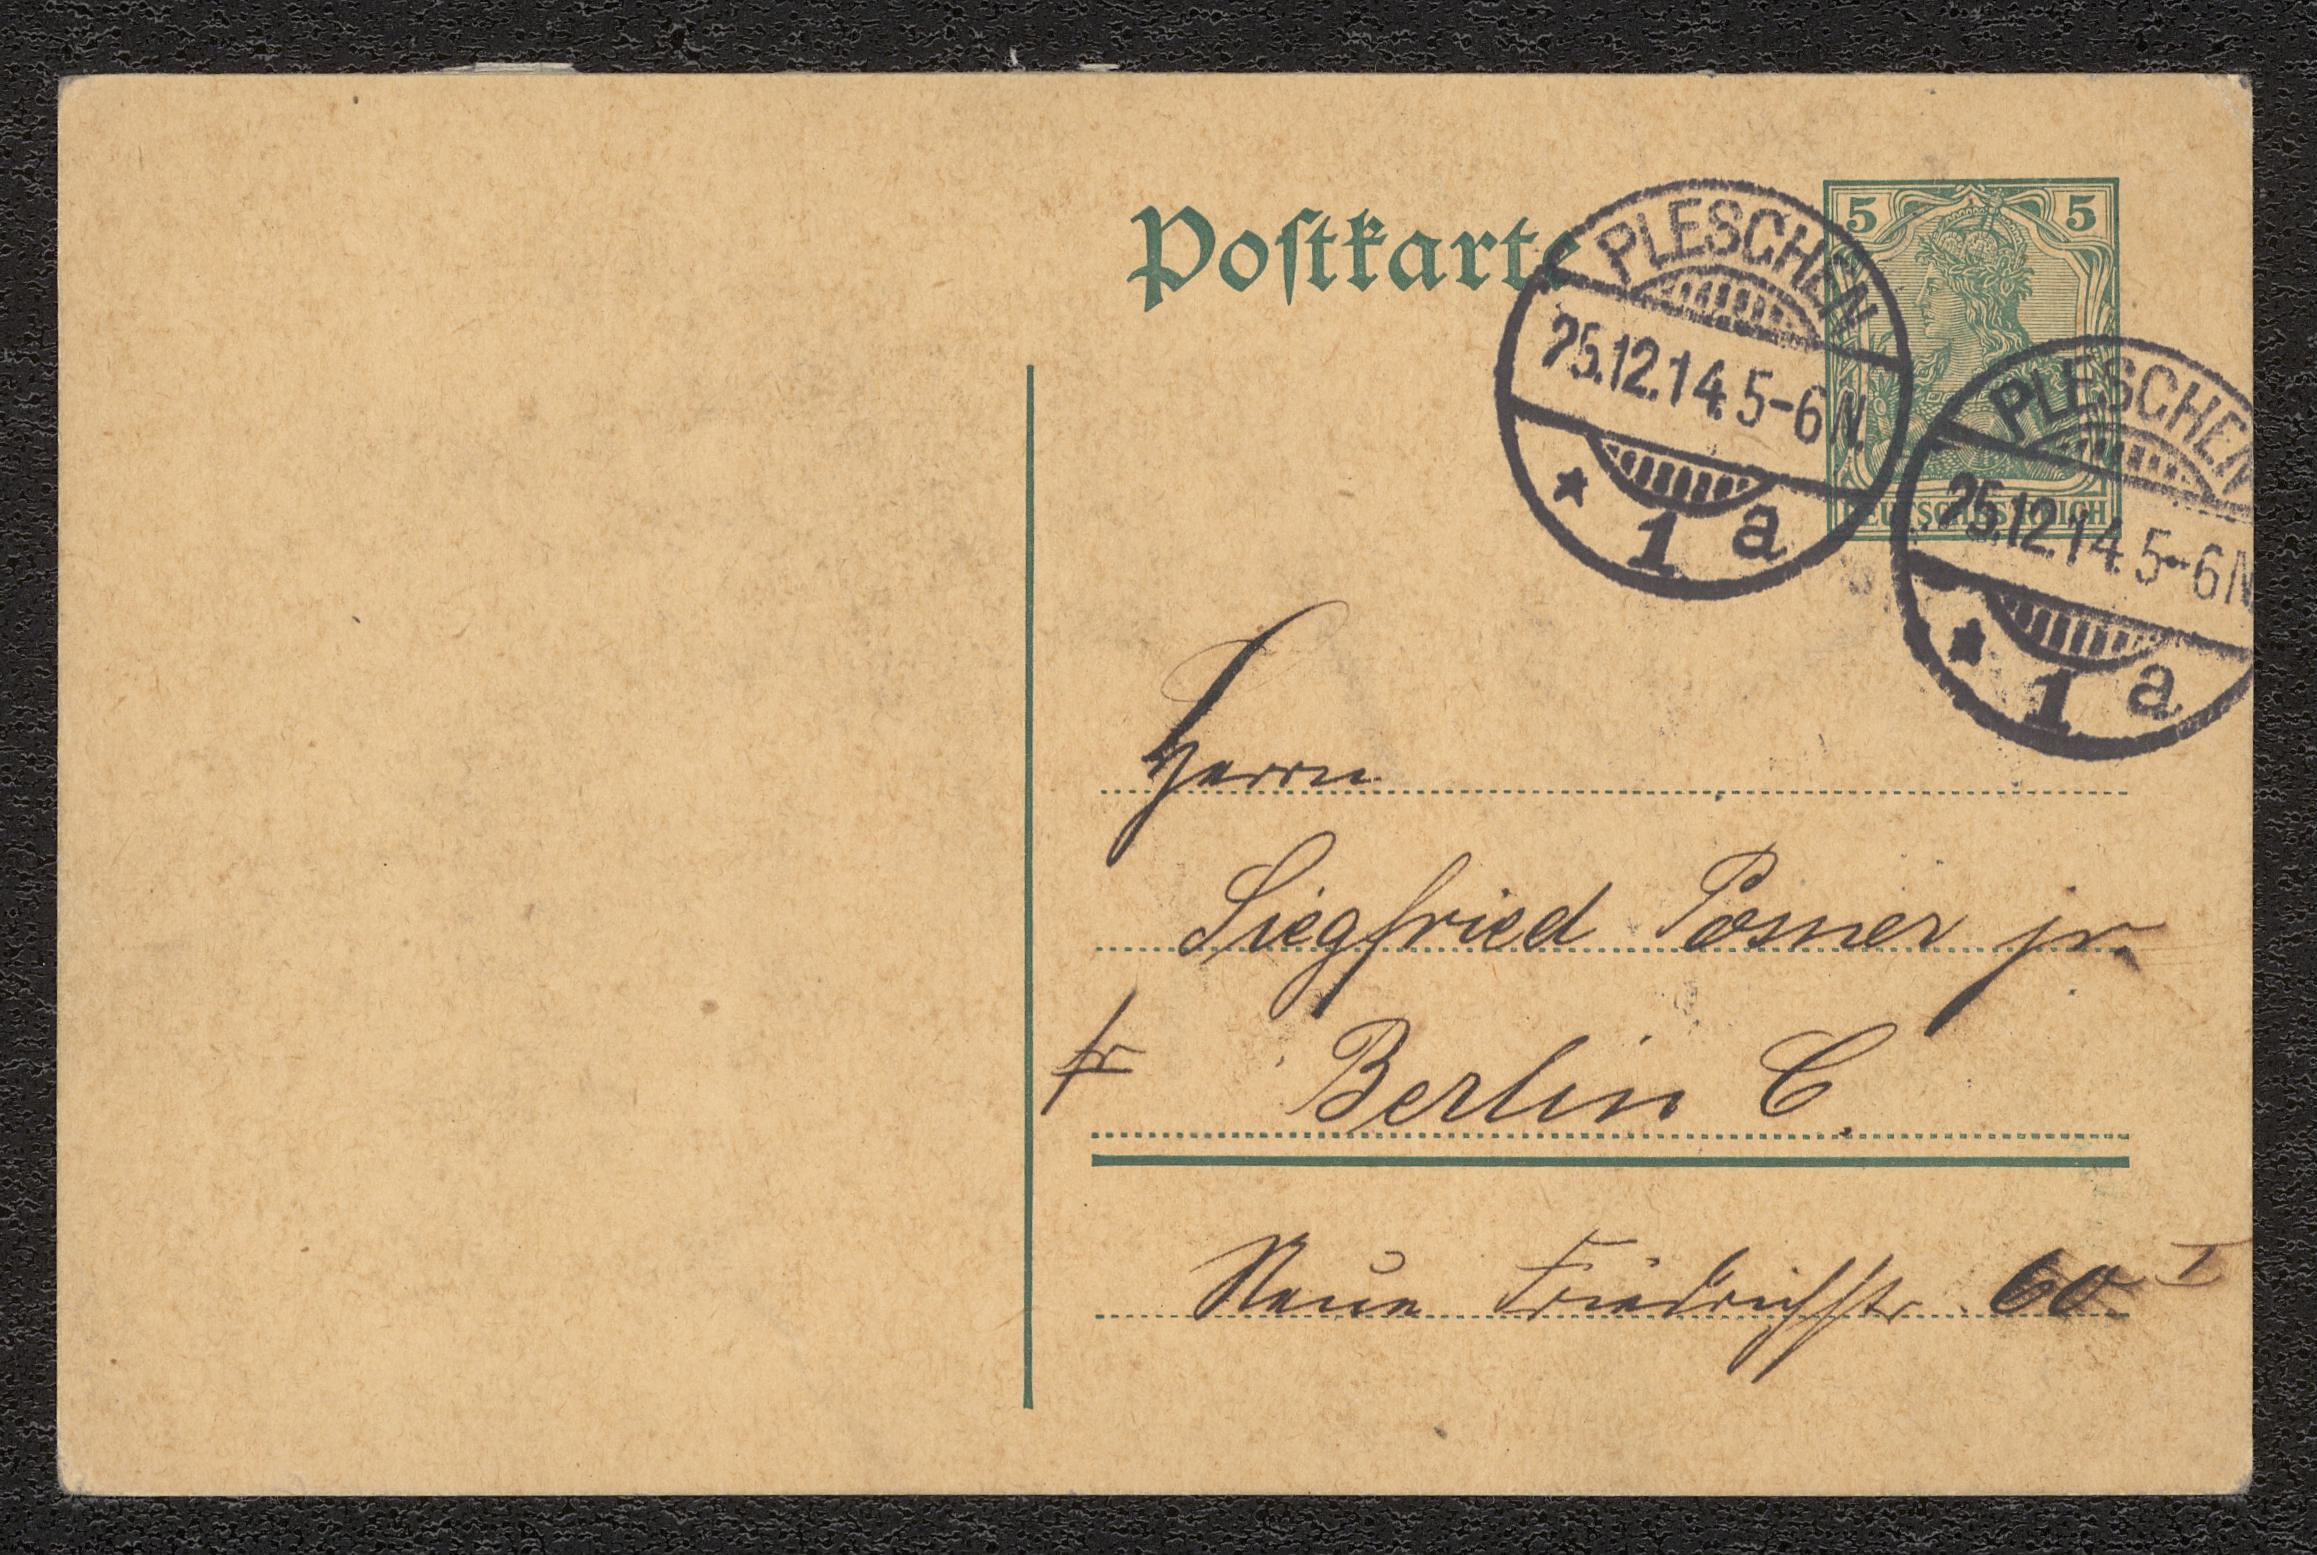 Postkarte
5 5
DEUTSCHES REICH
PLESCHEN
25.12.14. 5-6 N.
* 1 a
PLESCHEN
25.12.14. 5-6 N
* 1 a
Herrn
Siegfried Posner jr.
fr
Berlin C.
Neue Friedrichstr 60 I